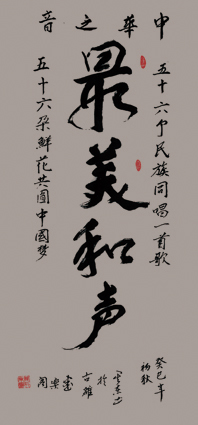 中華之音
五十六个民族同唱一首歌
最美和声
五十六朵鮮花共圆中國梦
癸巳年
初秋